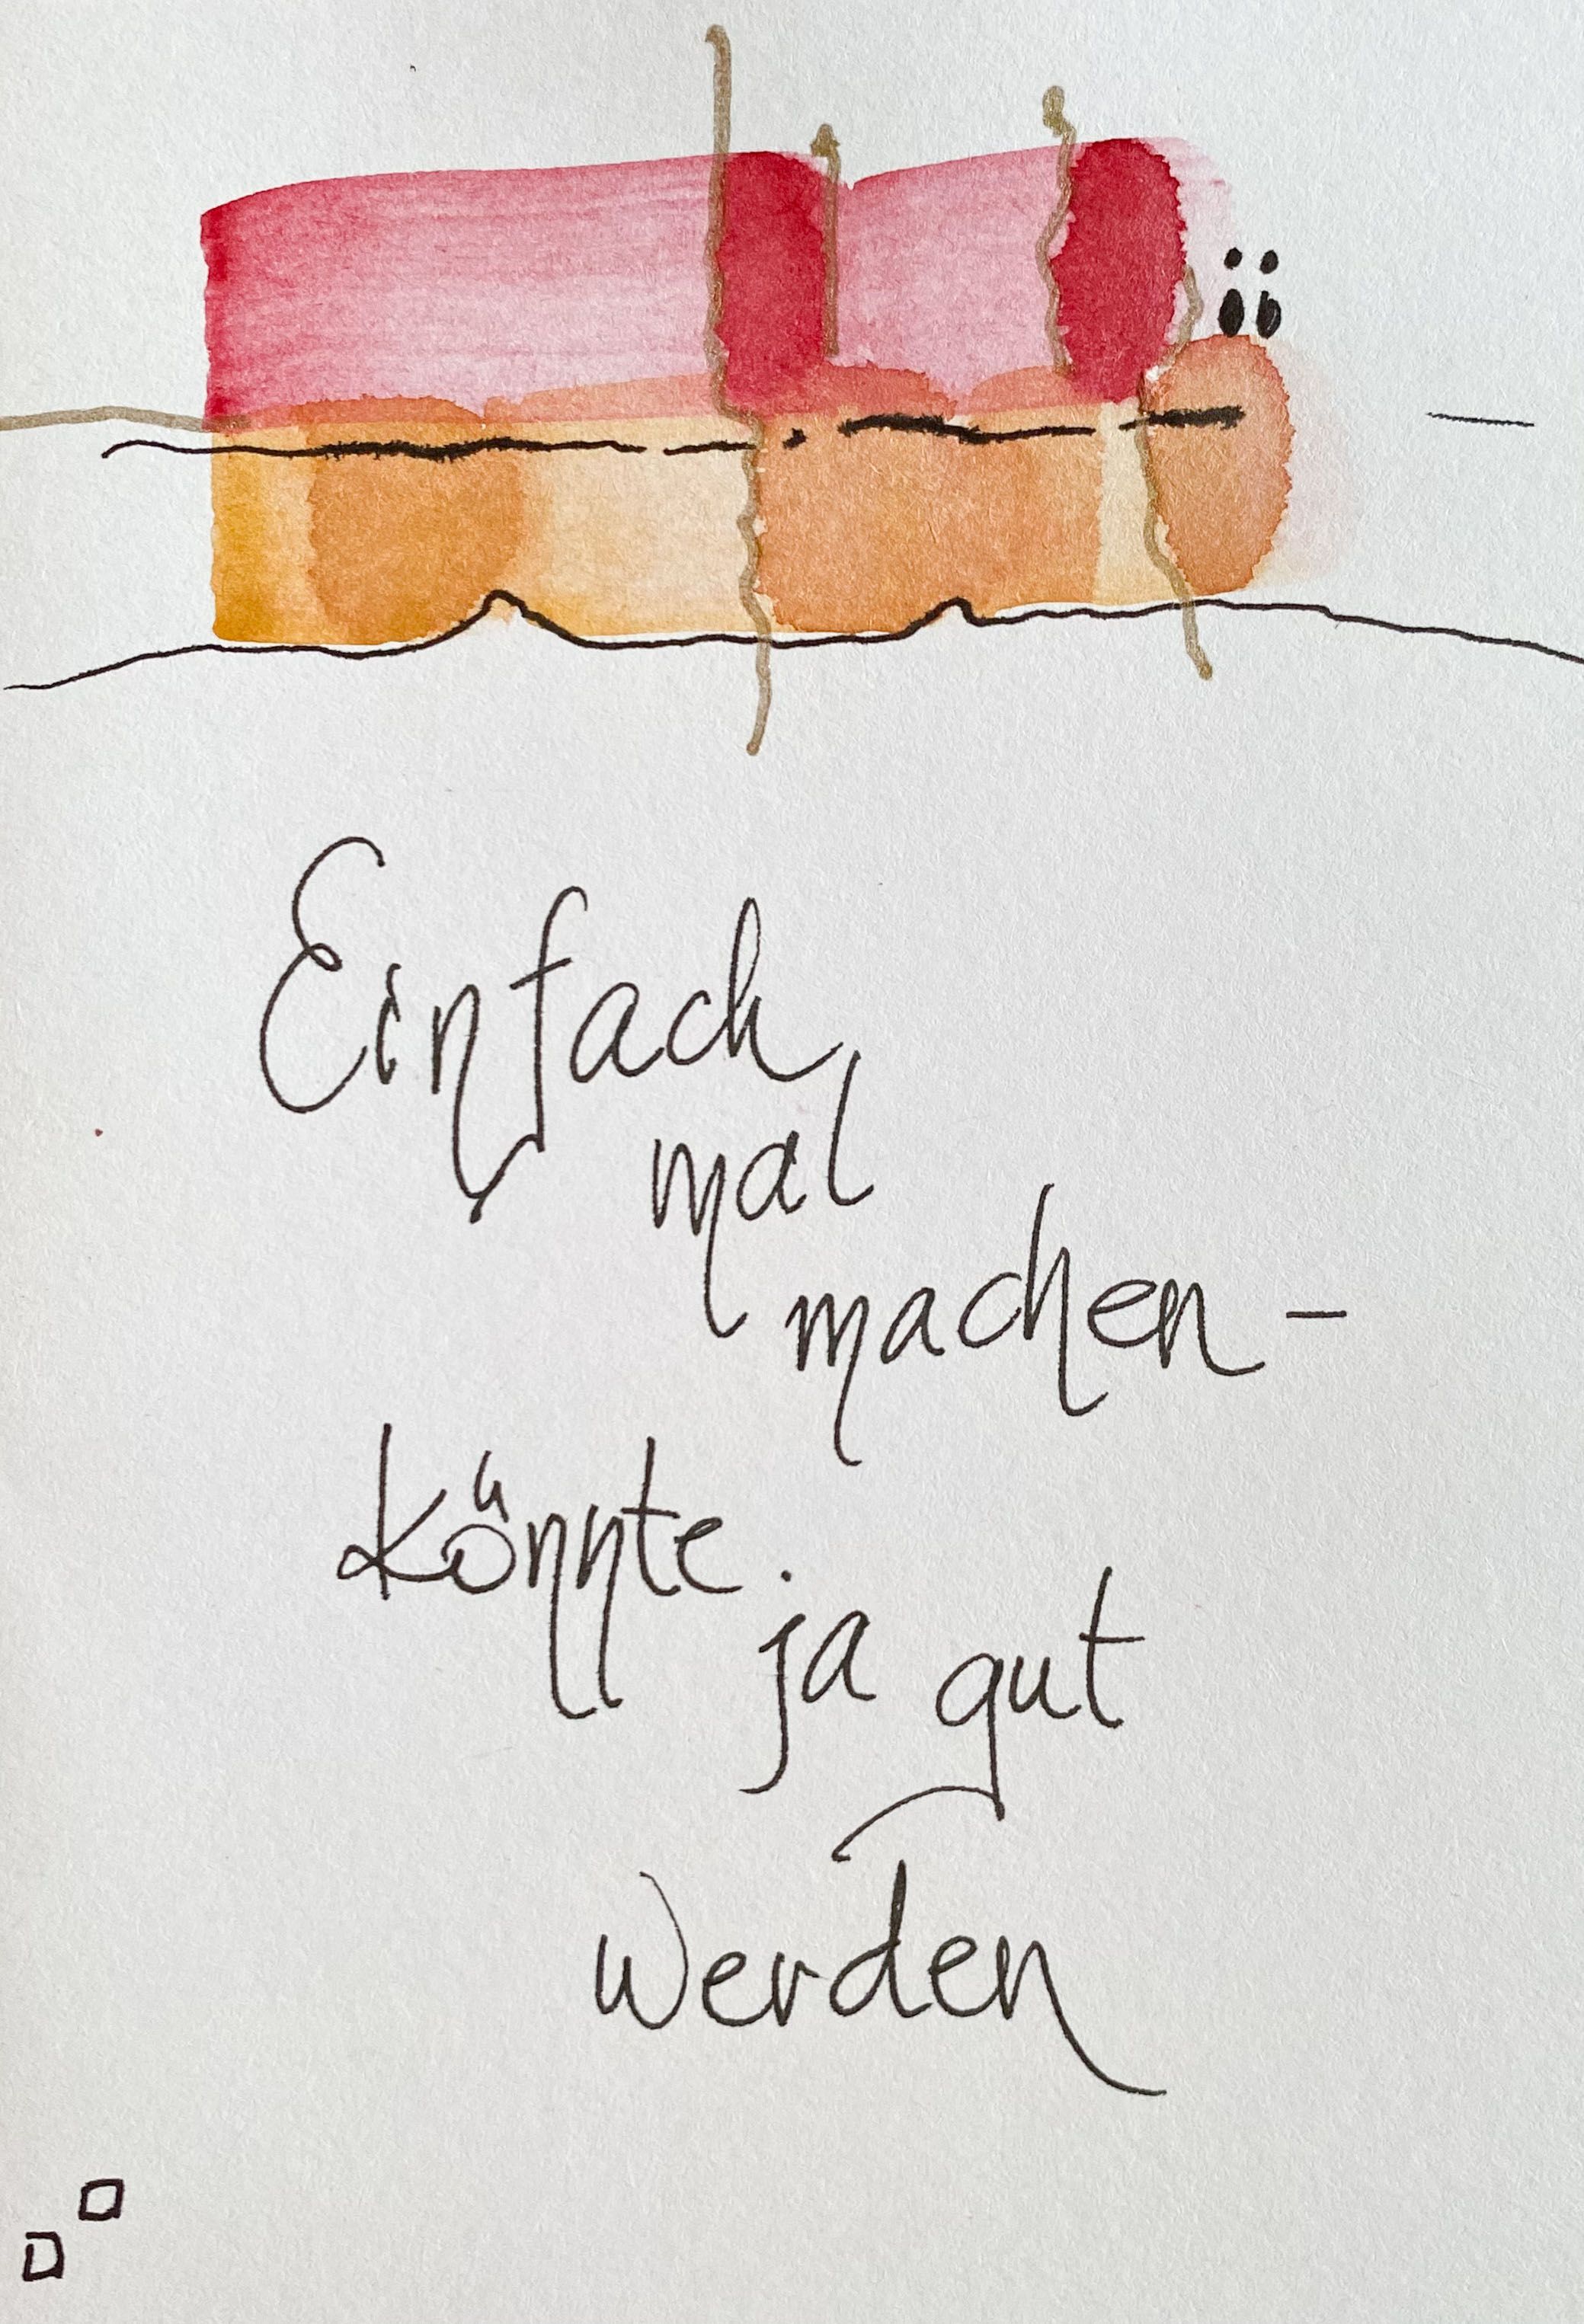 Einfach
mal
machen -
könnte
ja gut
werden